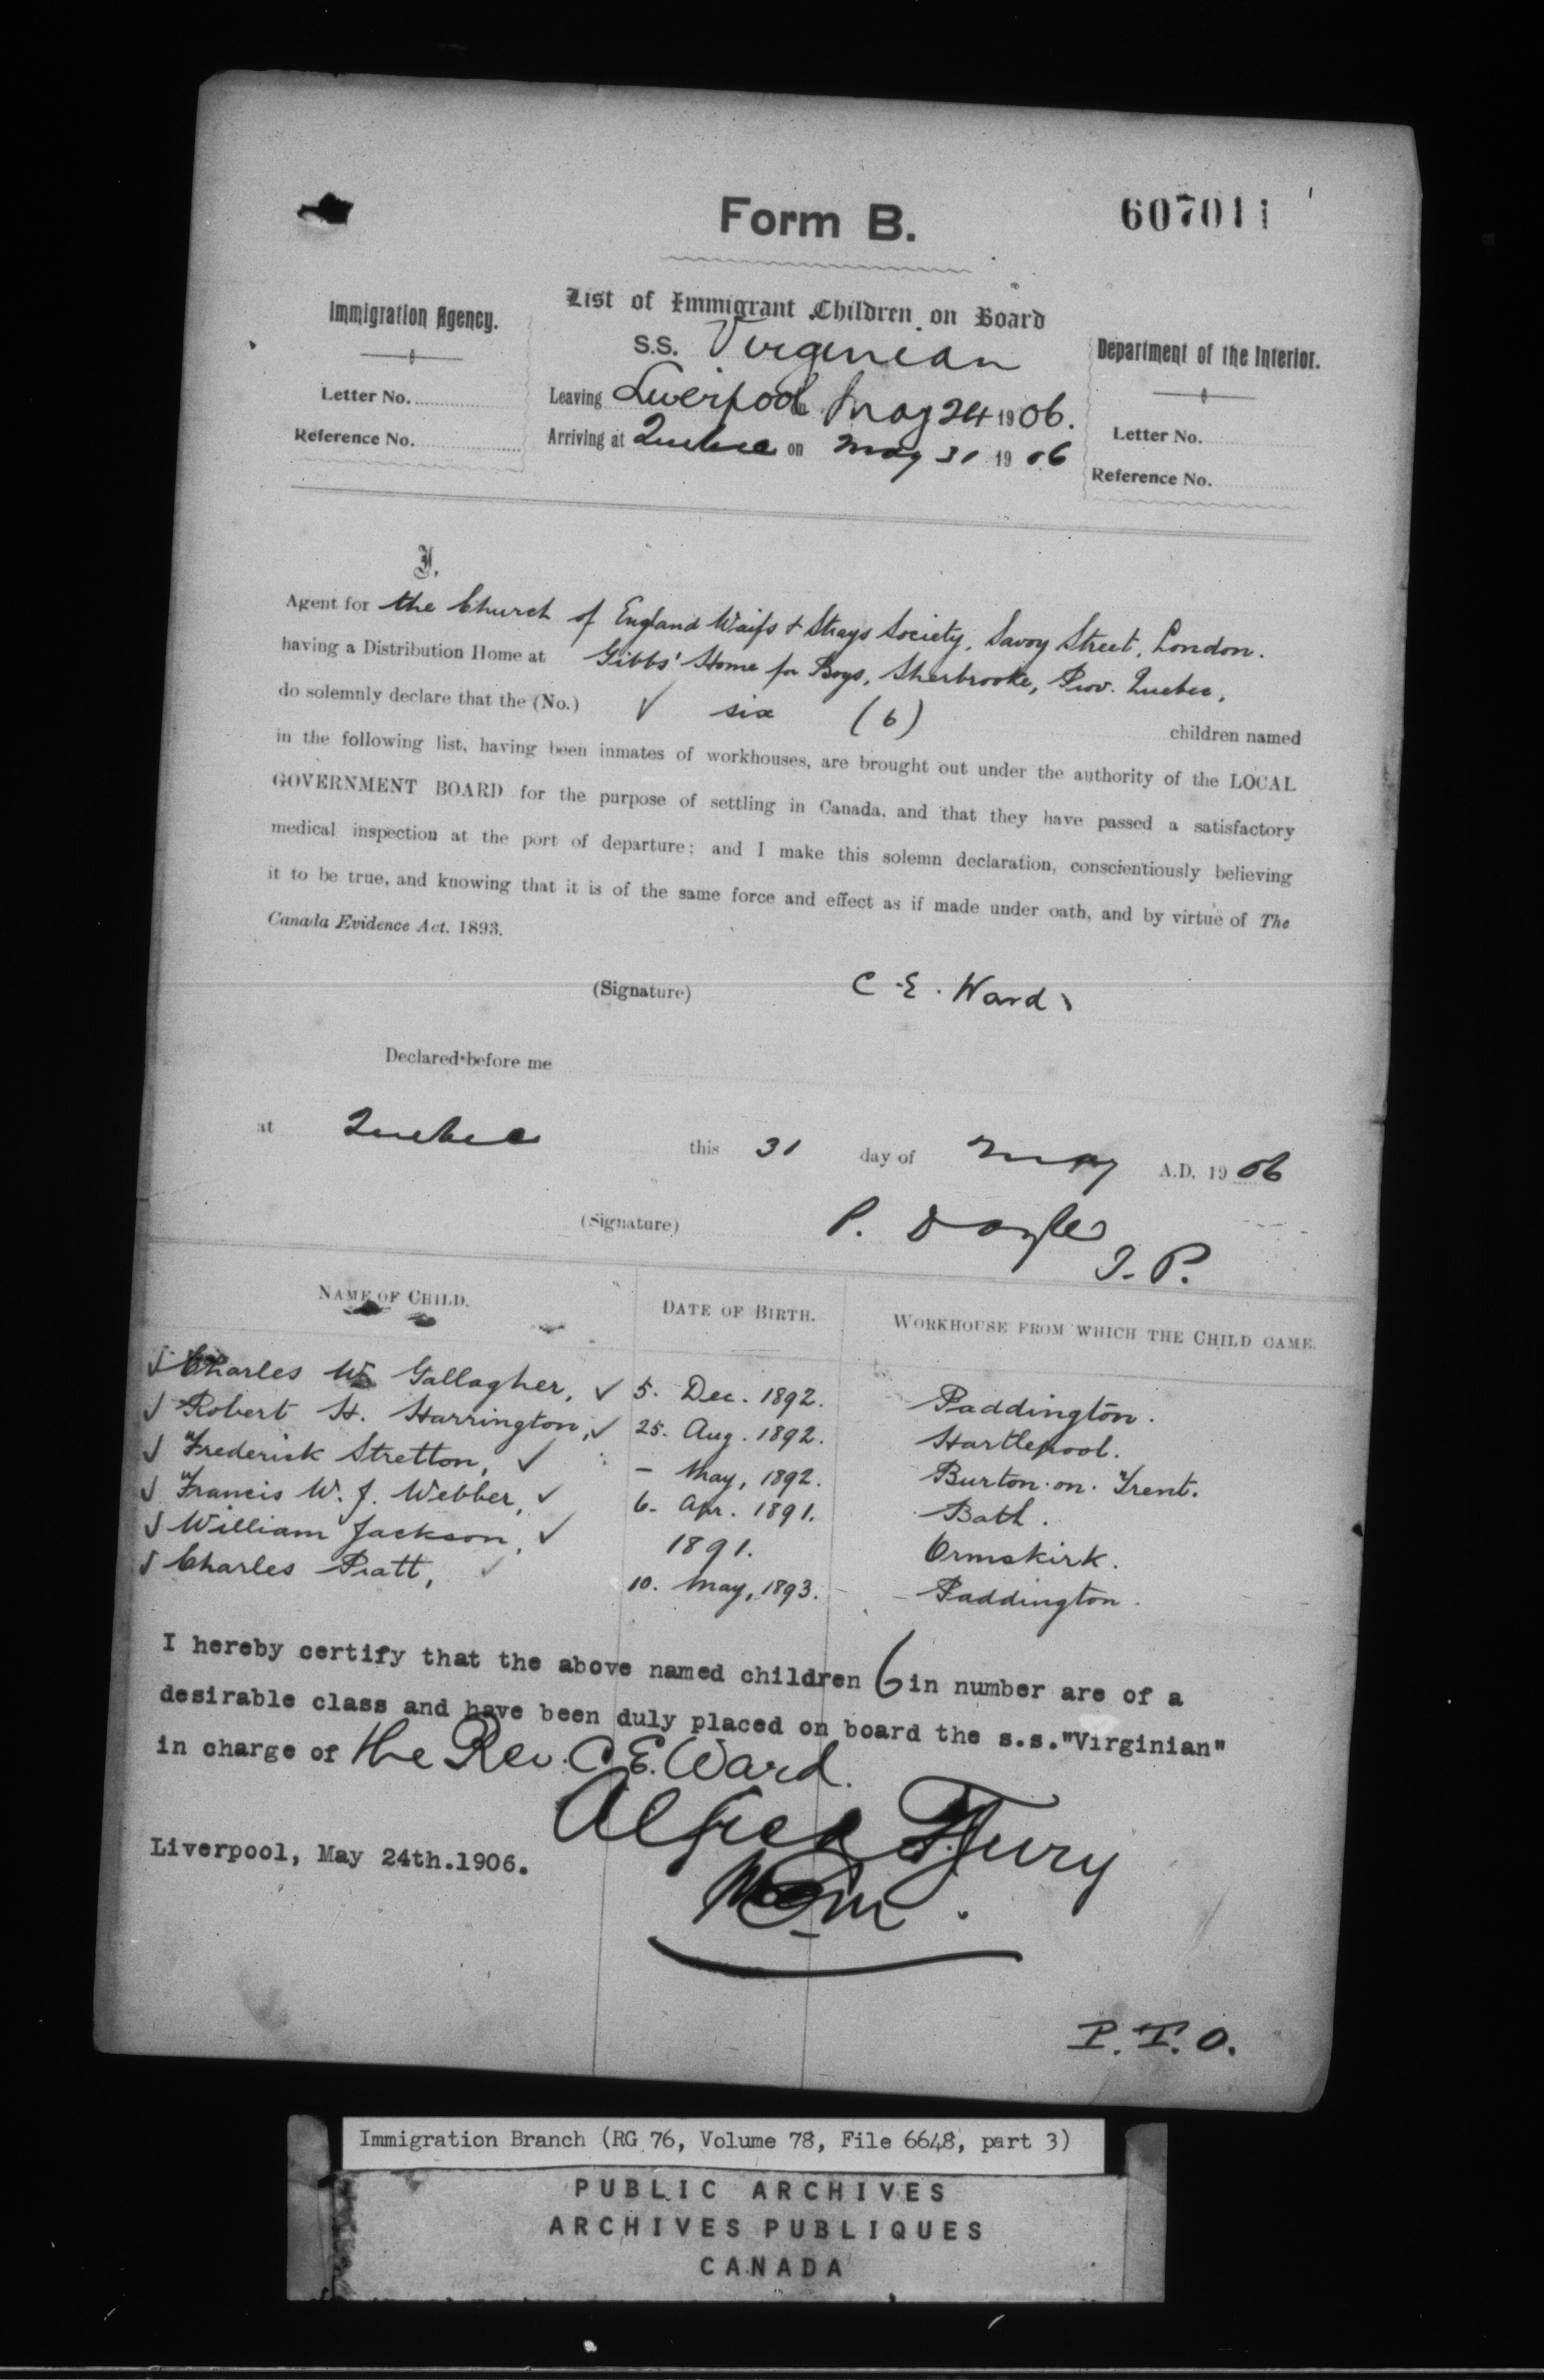 Form B.
607011
List of Immigrant Children on Board
S.S. Virginian
Leaving Liverpool May 24 1906.
Arriving at Quebec on May 31 1906
Immigration Agency.
Letter No.
Reference No.
Department of the Interior.
Letter No.
Reference No.
I,
Agent for the Church of England Waifs & Strays Society, Savoy Street, London.
having a Distribution Home at Gibbs' Home for Boys, Sherbrooke, Prov. Quebec,
do solemnly declare that the (No.) ✓ six (6) children named
in the following list, having been inmates of workhouses, are brought out under the authority of the LOCAL
GOVERNMENT BOARD for the purpose of settling in Canada, and that they have passed a satisfactory
medical inspection at the port of departure; and I make this solemn declaration, conscientiously believing
it to be true, and knowing that it is of the same force and effect as if made under oath, and by virtue of The
Canada Evidence Act, 1893.
(Signature) C. E. Ward
Declared before me
at Quebec this 31 day of May A.D. 1906
(Signature) P. Doyle
J. P.
NAME OF CHILD. DATE OF BIRTH. WORKHOUSE FROM WHICH THE CHILD CAME.
✓ Charles W. Gallagher, ✓ 5. Dec. 1892. Paddington.
✓ Robert H. Harrington, ✓ 25. Aug. 1892. Hartlepool.
✓ Frederick Stretton, ✓ - May, 1892. Burton-on-Trent.
✓ Francis W. J. Webber, ✓ 6. Apr. 1891. Bath.
✓ William Jackson, ✓ 1891. Ormskirk.
✓ Charles Piatt, ✓ 10. May, 1893. Paddington.
I hereby certify that the above named children 6 in number are of a
desirable class and have been duly placed on board the s.s."Virginian"
in charge of the Rev. C. E. Ward.
Alfred F. Jury
Liverpool, May 24th.1906.
P.T.O.
Immigration Branch (RG 76, Volume 78, File 6648, part 3)
PUBLIC ARCHIVES
ARCHIVES PUBLIQUES
CANADA